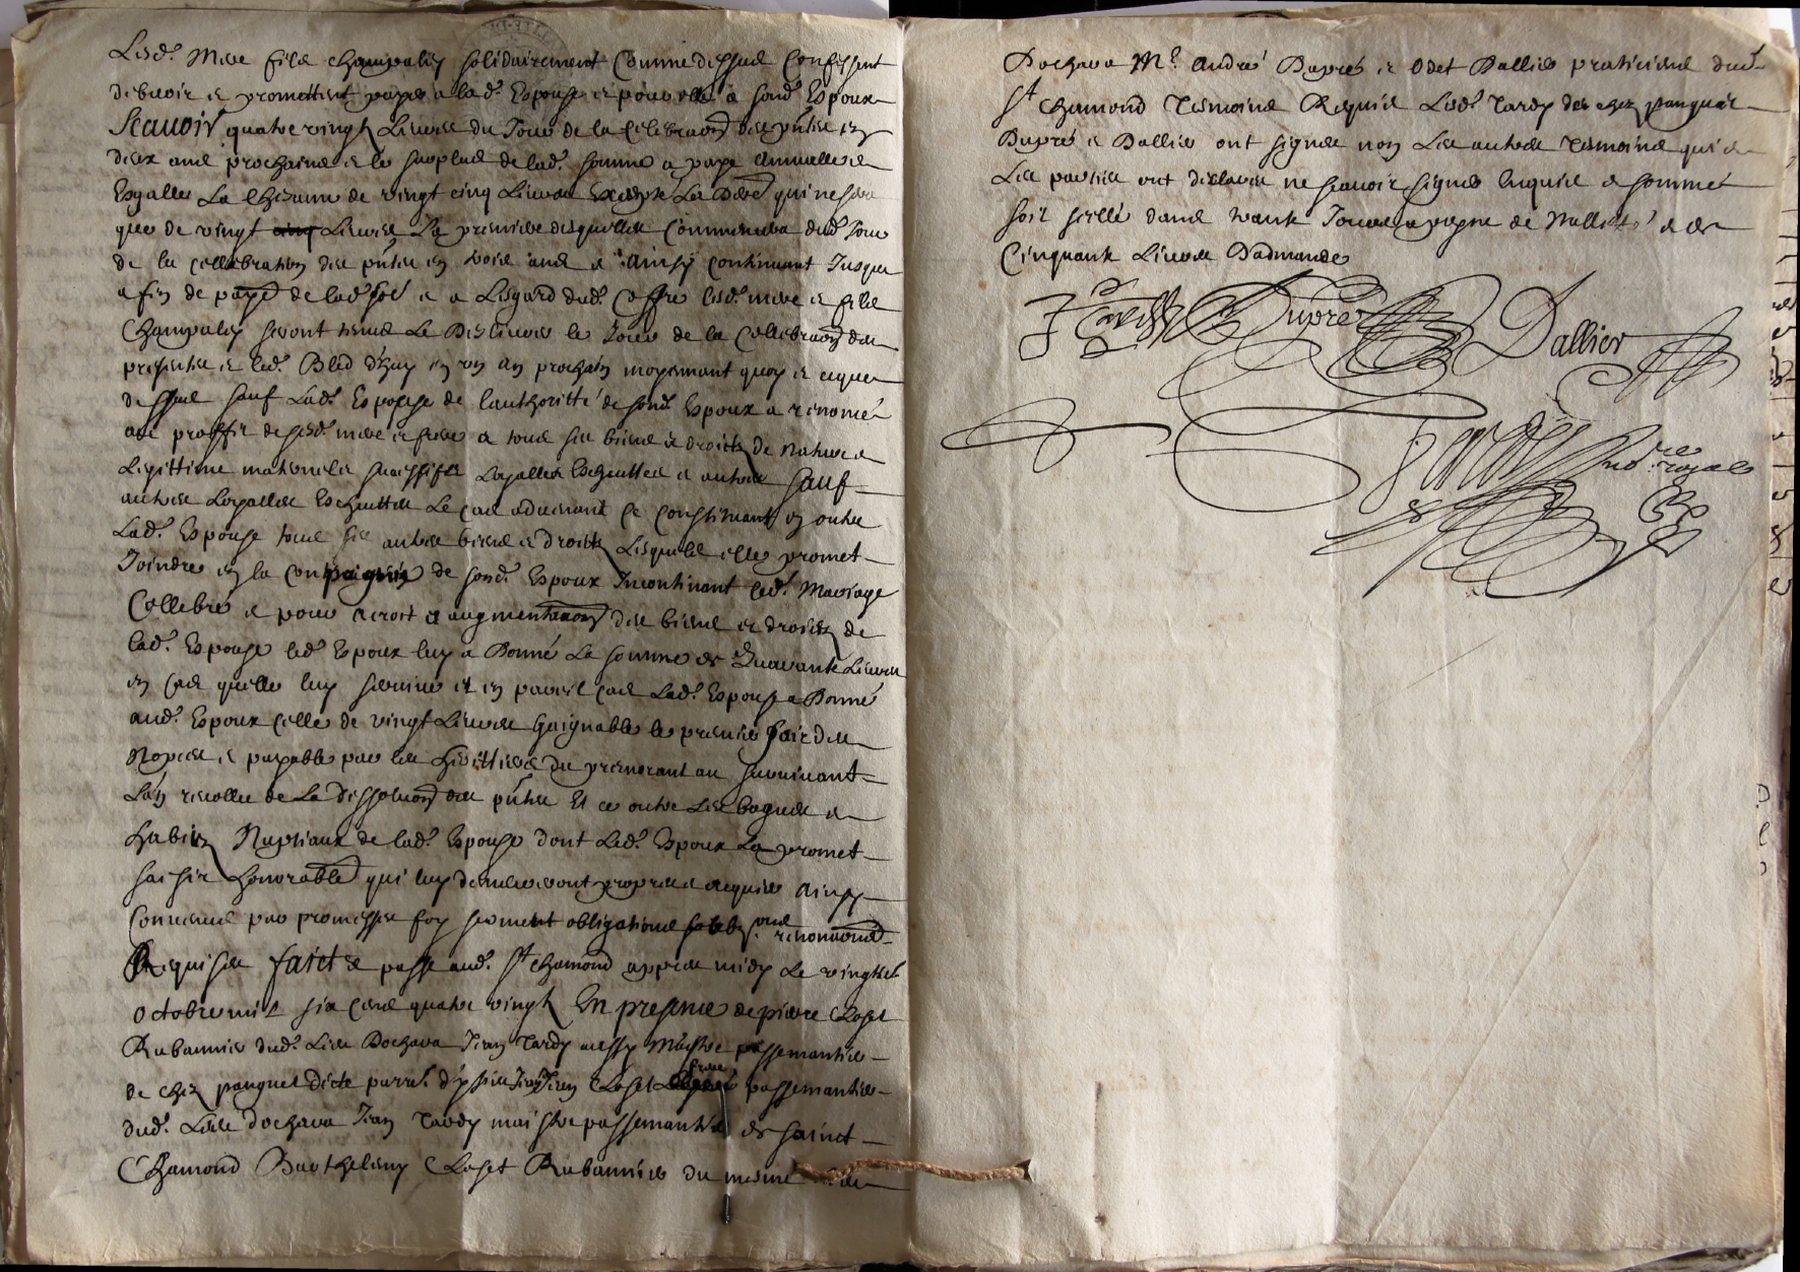 Lesd. Mere fils Champaley solidairement Comme dessus Confessent
debvoir et promettent payer a lad. Espouse et pour elle a sond. Espoux
Scauoir quatre vingtz Liures du Jour de la celebraon des pntes en
deux ans prochains et le surplus de lad. somme a paye Annuelles et
Esgalles La Chacune de vingt cinq Liures Excepte La Dere qui ne sera
que de vingt cinq Liures La premiere desquelles Commencera dud. Jour
de la cellebration des pntes en trois ans et Ainsy Continuant Jusques
a fin de paye de lad. et a Lesgard dud. Coffre lesd. mere et fils
Champaley seront tenus Le Deslivrer le Jour de la Cellebraon des
presentes et led. Bled d'huy en un an prochain moyennant quoy et ce que
dessus sauf Lad. Espouse de l'authoritté de sond. Espoux a renoncé
au proffit de sesd. mere et frere a tous ses biens et droitz de Nature
Legittime maternels successifs Loyalles Escheuttes et autres sauf
autres Loyalles Escheuttes Le cas aduenant se Constituant en outre
Lad. Espouse tous ses autres biens et droitz Lesquels elle promet
Joindre en la compaignie de sond. Espoux Incontinant led. Mariage
Cellebré et pour acroit et augmentaon des biens et droitz de
lad. Espouse led. Espoux luy a Donné La somme de Quarante Liures
en cas quelle luy survive et en pareil cas Lad. Espouse a Donné
aud. Espoux celle de vingt Liures Gaignable le premier soir des
Nopces et payable par les Heritiers du premorant au survivant
L'an revollu de La dissoluon des pntes Et ce outre Les bagues et
habitz Nuptiaux de lad. Espouse dont Led. Espoux La promet
saisir honorablemt qui luy demeureront propres et acquis Ainsy
Convenus par promesses foy serment obligations renonciaons
Requises faict et passé aud. St Chamond appres midy Le vingt
Octobre mil six cens quatre vingtz En presence de pierre Loset
Rubannier dud. Lieu Dochava Jean Tardy aussy Maistre passemantier
de chez panguet dicte parr. Jean Loset frere passemantier
dud. Lieu dochava Jean Tardy maistre passemantier de sainct
Chamond Barthelemy Loset Rubannier du mesme lieu
Dochava Me. André Dupré et Odet Dallier praticiens dud.
St Chamond Tesmoins Requis Lesd. Tardy de chez panguet
Dupré et Dallier ont signés non Les autres tesmoins qui et
Les parties ont declaré ne scavoir signer Enquis et sommés
soit scellé dans trante Jours a peyne de Nullitté et de
Cinquante Liures Dadmande
Dupré Dallier
no.re royal